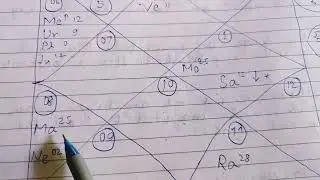 5
Ve
Me 12
Ur 9
Pl 9
Ju
07
1
Mo 25
10
Sa
12
08
Ma 25
09
11
Ne 02
Ra 28